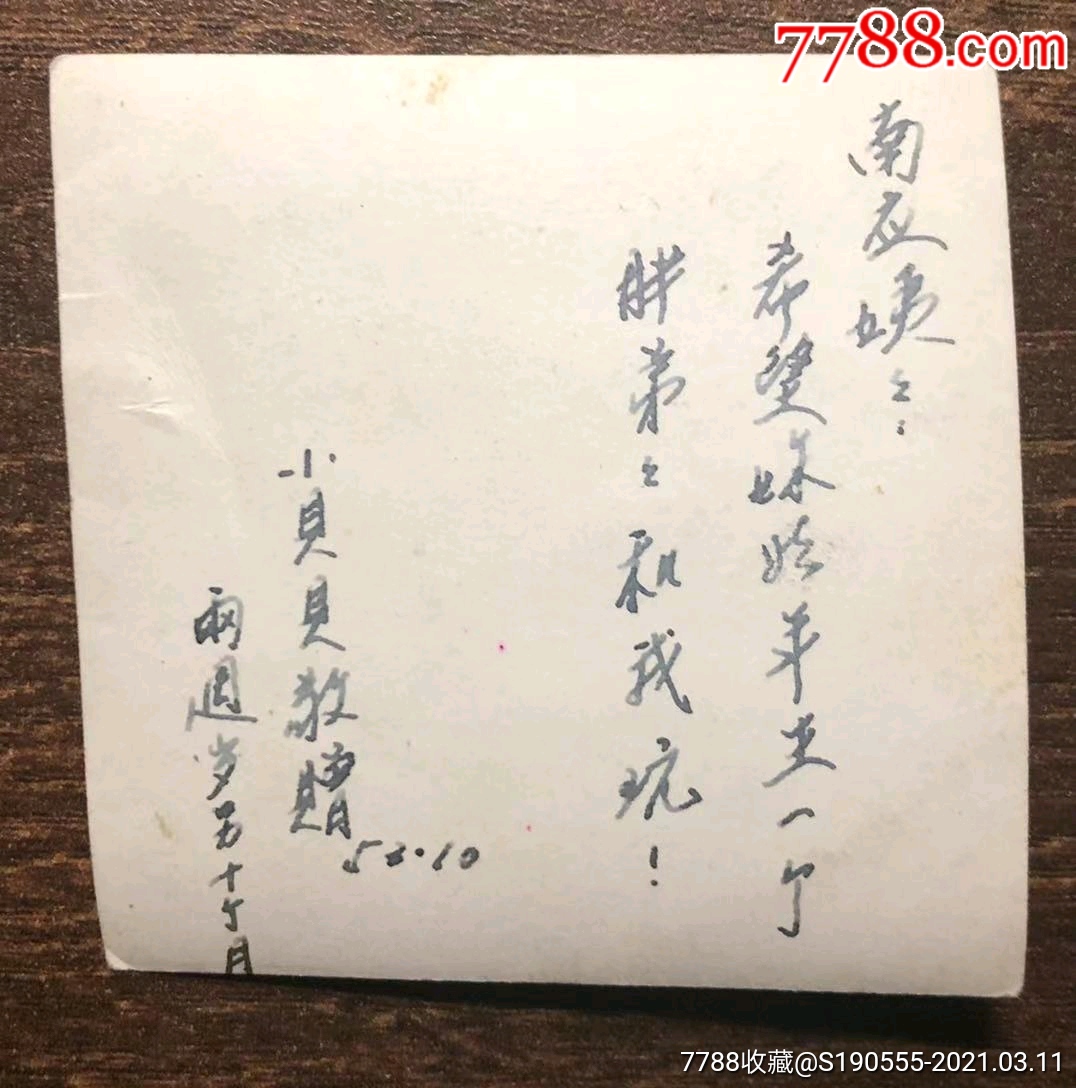 7788.com
南应姨々:
希望妳早生一个
胖弟々和我玩!
小貝貝敬贈
52.10
兩週岁另十个月
7788收藏@S190555-2021.03.11